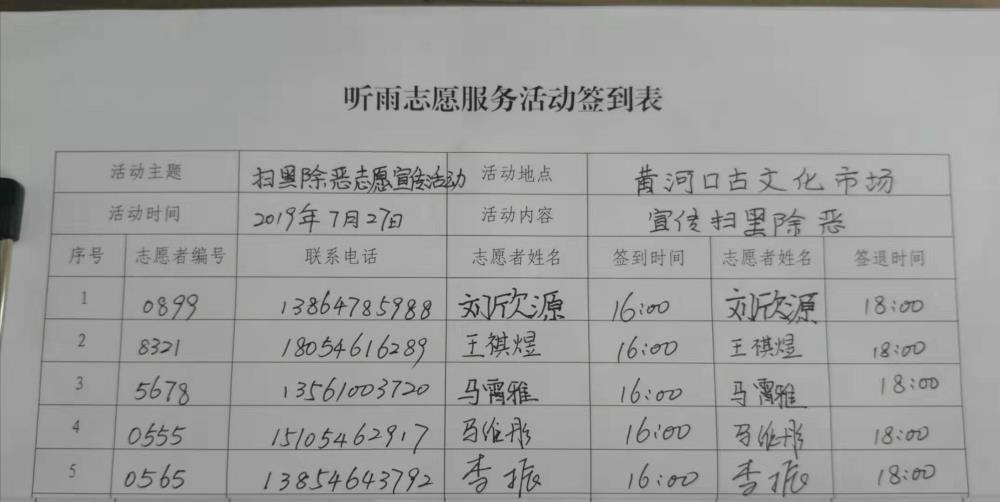 听雨志愿服务活动签到表
活动主题 扫黑除恶志愿宣传活动 活动地点 黄河口古文化市场
活动时间 2019年7月27日 活动内容 宣传扫黑除恶
序号 志愿者编号 联系电话 志愿者姓名 签到时间 志愿者姓名 签退时间
1 0899 13864785988 刘欣源 16:00 刘欣源 18:00
2 8321 18054616289 王祺煜 16:00 王祺煜 18:00
3 5678 13561003720 马霄雅 16:00 马霄雅 18:00
4 0555 15105462917 马维彤 16:00 马维彤 18:00
5 0565 13854643792 李振 16:00 李振 18:00